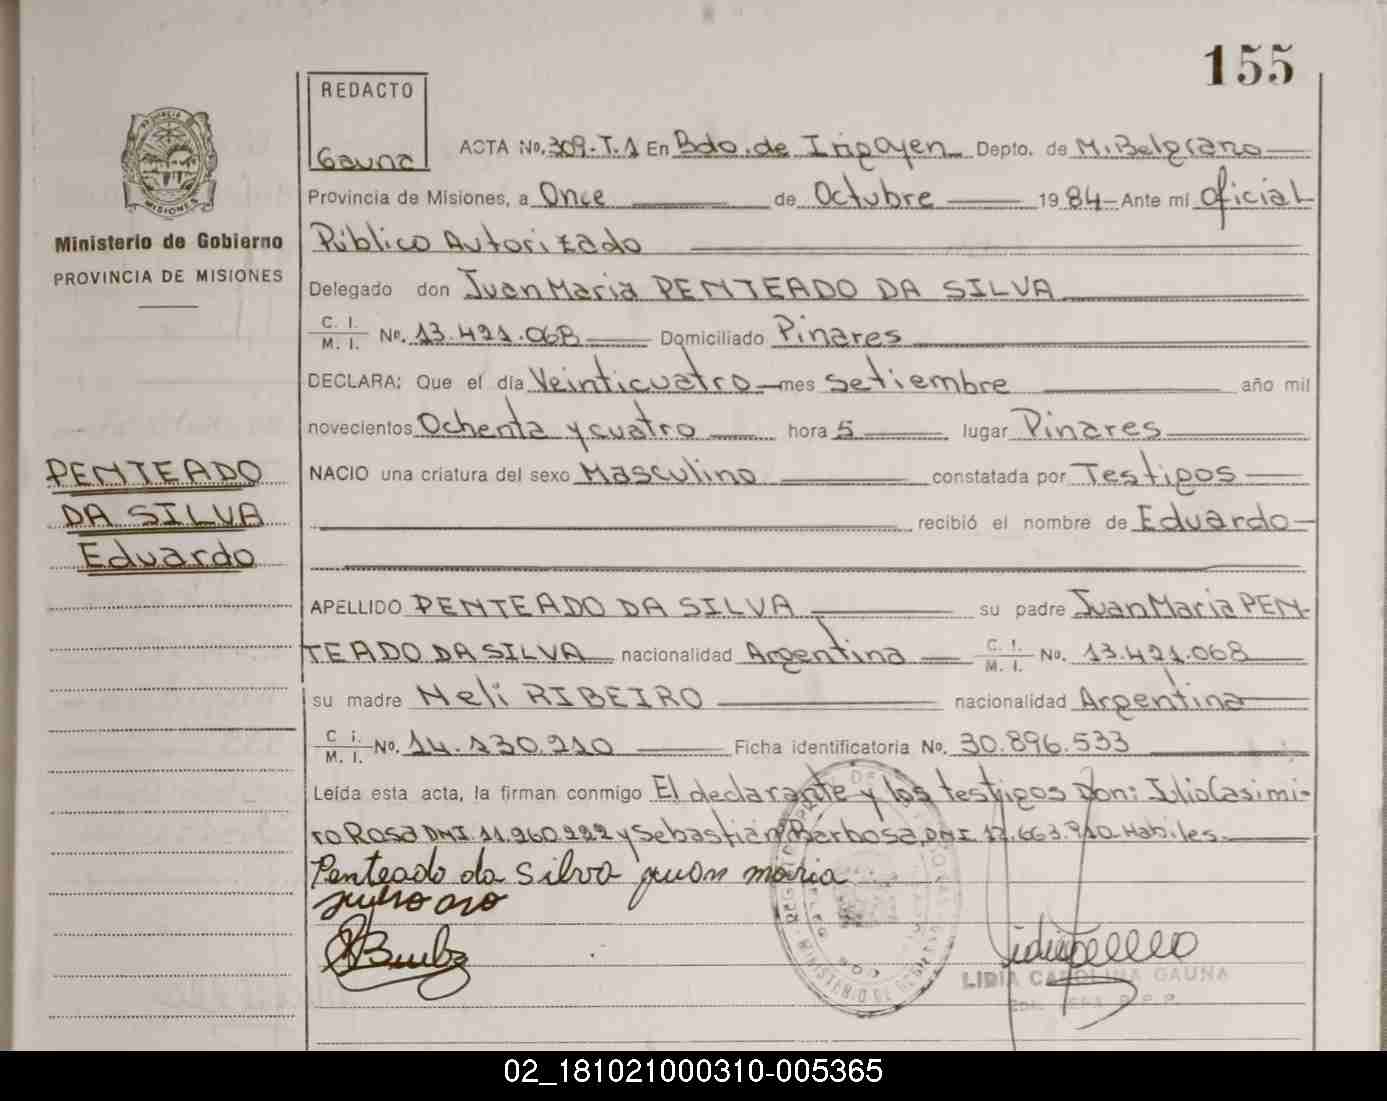 155
REDACTO
Gauna
PROVINCIA DE
MISIONES
Ministerio de Gobierno
PROVINCIA DE MISIONES
PENTEADO
DA SILVA
Eduardo
ACTA No. 309-T.1 En Bdo. de Irigoyen Depto. de M. Belgrano
Provincia de Misiones, a Once de Octubre 1984 Ante mi Oficial
Público Autorizado
Delegado don Juan Maria PENTEADO DA SILVA
C. I. M. I. No. 13.421.068 Domiciliado Pinares
DECLARA: Que el día Veinticuatro mes Setiembre año mil
novecientos Ochenta y cuatro hora 5 lugar Pinares
NACIO una criatura del sexo Masculino constatada por Testigos
recibió el nombre de Eduardo
APELLIDO PENTEADO DA SILVA su padre Juan Maria PEN-
TEADO DA SILVA nacionalidad Argentina C. I. M. I. No. 13.421.068
su madre Neli RIBEIRO nacionalidad Argentina
C. i. M. I. No. 14.130.210 Ficha identificatoria No. 30.896.533
Leída esta acta, la firman conmigo El declarante y los testigos Don: Julio Casimi-
ro Rosa DNI. 11.960.222 y Sebastián Barbosa, DNI. 17.663.910 Habiles.
Penteado da Silva juan maria
LIDIA CAROLINA GAUNA
02_181021000310-005365